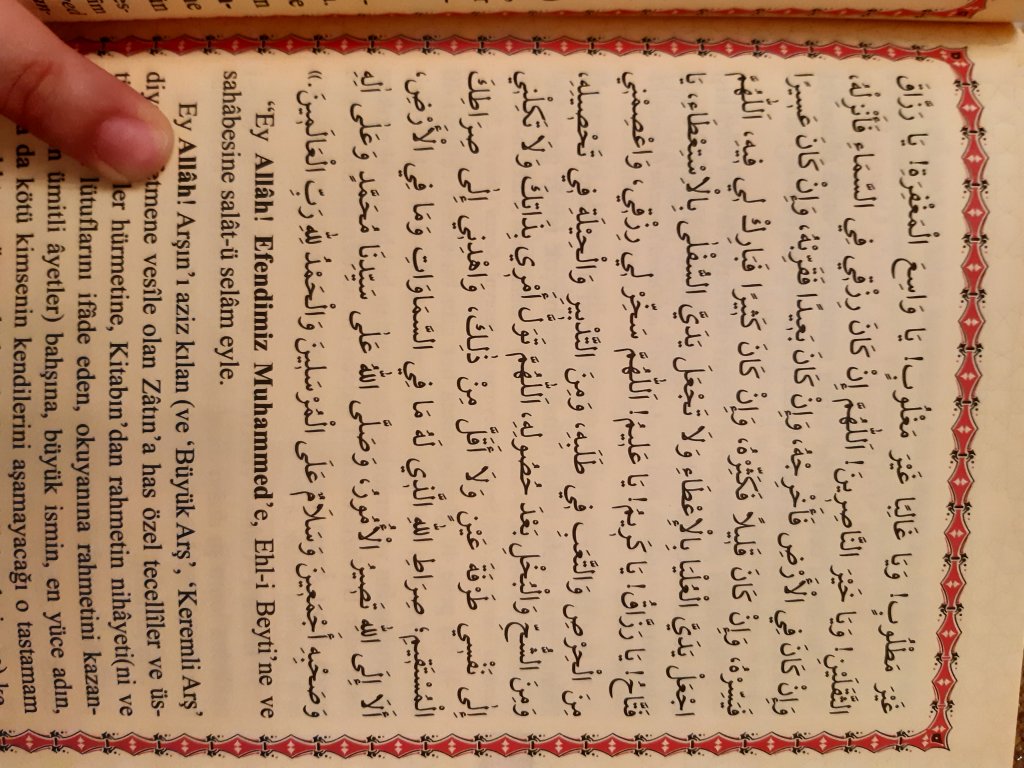 غَيْرَ مَطْلُوبٍ! وَيَا غَالِبًا غَيْرَ مَغْلُوبٍ! يَا وَاسِعَ الْمَغْفِرَةِ! يَا رَزَّاقَ
الثَّقَلَيْنِ! وَيَا خَيْرَ النَّاصِرِينَ! اَللّٰهُمَّ إِنْ كَانَ رِزْقِي فِي السَّمَاءِ فَأَنْزِلْهُ،
وَإِنْ كَانَ فِي الْأَرْضِ فَأَخْرِجْهُ، وَإِنْ كَانَ بَعِيدًا فَقَرِّبْهُ، وَإِنْ كَانَ عَسِيرًا
فَيَسِّرْهُ، وَإِنْ كَانَ قَلِيلًا فَكَثِّرْهُ، وَإِنْ كَانَ كَثِيرًا فَبَارِكْ لِي فِيهِ، اَللّٰهُمَّ
اجْعَلْ يَدَيَّ الْعُلْيَا بِالْإِعْطَاءِ وَلَا تَجْعَلْ يَدَيَّ السُّفْلٰى بِالْاِسْتِعْطَاءِ، يَا
فَتَّاحُ! يَا رَزَّاقُ! يَا كَرِيمُ! يَا عَلِيمُ! اَللّٰهُمَّ سَخِّرْ لِي رِزْقِي، وَاعْصِمْنِي
مِنَ الْحِرْصِ وَالتَّعَبِ فِي طَلَبِهِ، وَمِنَ التَّدْبِيرِ وَالْحِيلَةِ فِي تَحْصِيلِهِ،
وَمِنَ الشُّحِّ وَالْبُخْلِ بَعْدَ حُصُولِهِ، اَللّٰهُمَّ تَوَلَّ أَمْرِي بِذَاتِكَ وَلَا تَكِلْنِي
إِلٰى نَفْسِي طَرْفَةَ عَيْنٍ وَلَا أَقَلَّ مِنْ ذٰلِكَ، وَاهْدِنِي إِلٰى صِرَاطِكَ
الْمُسْتَقِيمِ؛ صِرَاطِ اللّٰهِ الَّذِي لَهُ مَا فِي السَّمَاوَاتِ وَمَا فِي الْأَرْضِ،
أَلَا إِلَى اللّٰهِ تَصِيرُ الْأُمُورُ، وَصَلَّى اللّٰهُ عَلٰى سَيِّدِنَا مُحَمَّدٍ وَعَلٰى اٰلِهِ
وَصَحْبِهِ أَجْمَعِينَ وَسَلَامٌ عَلَى الْمُرْسَلِينَ وَالْحَمْدُ لِلّٰهِ رَبِّ الْعَالَمِينَ.»
“Ey Allâh! Efendimiz Muhammed’e, Ehl-i Beyti’ne ve
sahâbesine salât-ü selâm eyle.
Ey Allâh! Arşın’ı aziz kılan (ve ‘Büyük Arş’, ‘Keremli Arş’
etmene vesîle olan Zâtın’a has özel tecellîler ve üs-
ler hürmetine, Kitabın’dan rahmetin nihâyeti(ni ve
lütuflarını ifâde eden, okuyanına rahmetini kazan-
ümitli âyetler) bahşına, büyük ismin, en yüce adın,
da kötü kimsenin kendilerini aşamayacağı o tastamam